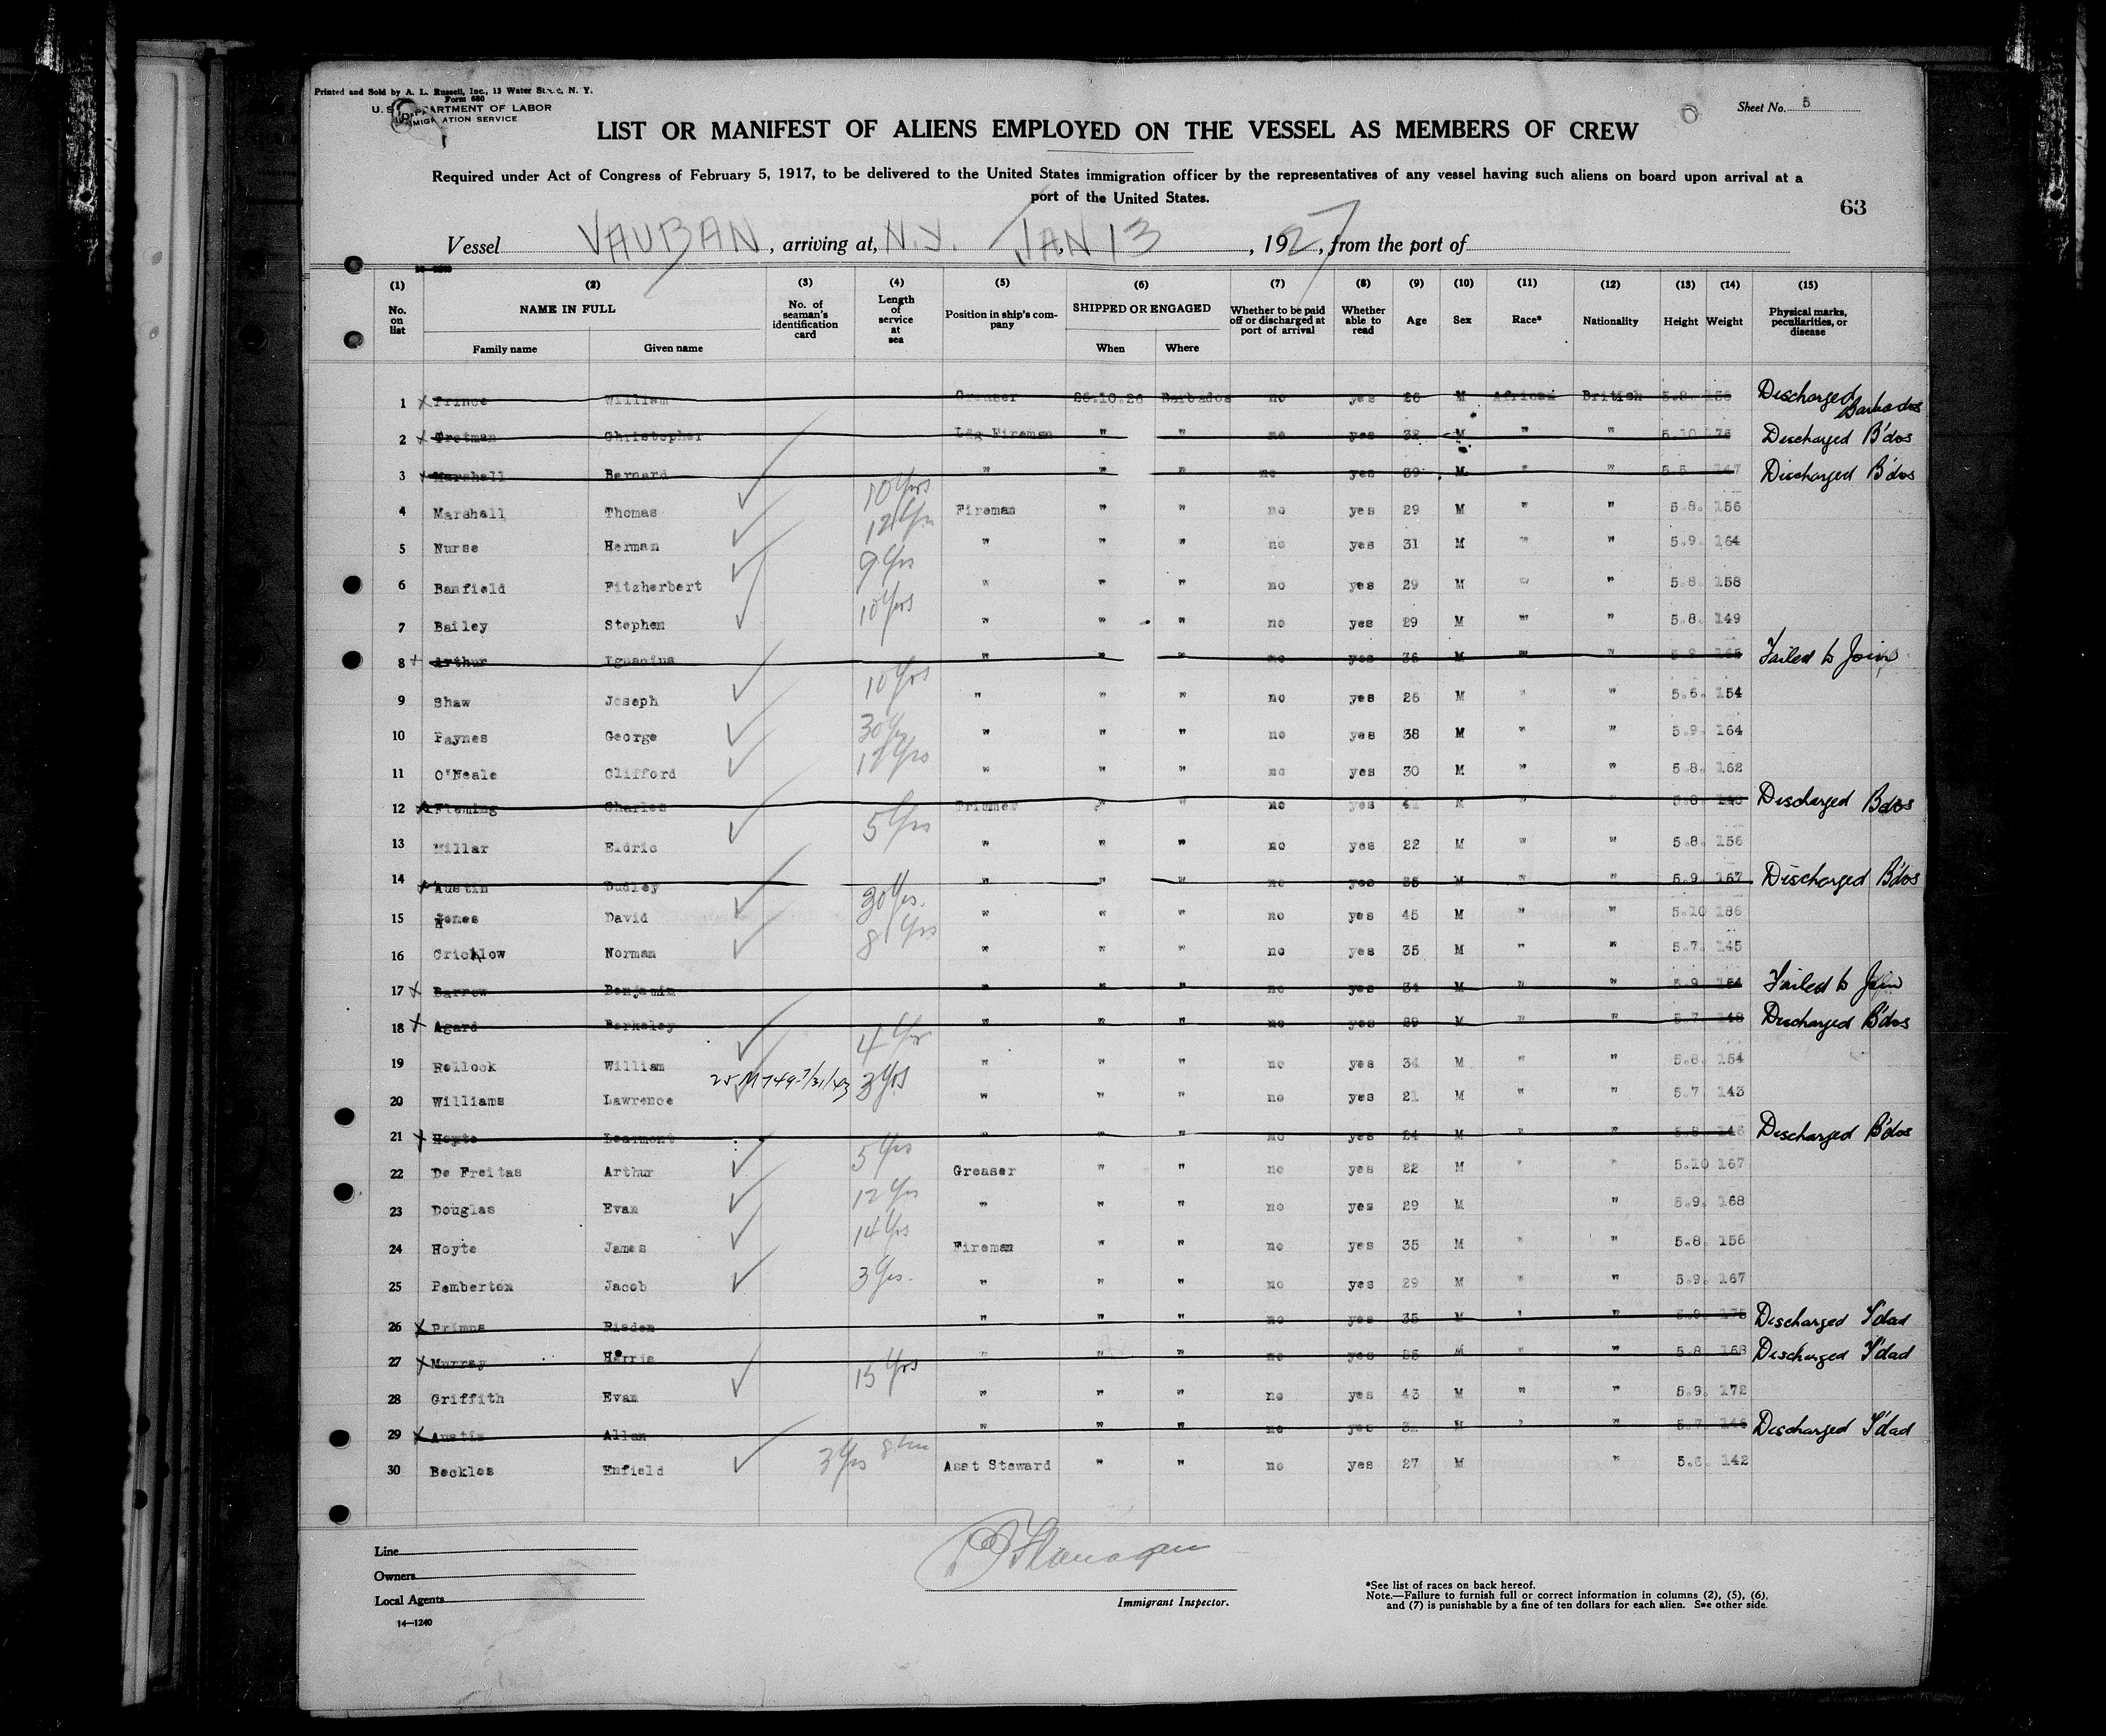 Printed and Sold by A. L. Russell, Inc., 13 Water Street, N. Y.
Form 680
U. S. DEPARTMENT OF LABOR
IMMIGRATION SERVICE
Sheet No. 5
LIST OR MANIFEST OF ALIENS EMPLOYED ON THE VESSEL AS MEMBERS OF CREW
Required under Act of Congress of February 5, 1917, to be delivered to the United States immigration officer by the representatives of any vessel having such aliens on board upon arrival at a
port of the United States.
63
Vessel VAUBAN, arriving at, N.Y. JAN 13, 1927, from the port of
(1) (2) (3) (4) (5) (6) (7) (8) (9) (10) (11) (12) (13) (14) (15)
No. on list NAME IN FULL No. of seaman's identification card Length of service at sea Position in ship's company SHIPPED OR ENGAGED Whether to be paid off or discharged at port of arrival Whether able to read Age Sex Race* Nationality Height Weight Physical marks, peculiarities, or disease
Family name Given name When Where
1 Prince William Greaser 26.10.26 Barbados no yes 26 M African British 5.8. 158 Discharged Barbados
2 Tretman Christopher Ldg Fireman " " no yes 32 M " " 5.10 176 Discharged B'dos
3 Marshall Bernard " " " no yes 39 M " " 5.5. 147 Discharged B'dos
4 Marshall Thomas 10 Yrs Fireman " " no yes 29 M " " 5.8. 156
5 Nurse Herman 12 Yrs " " " no yes 31 M " " 5.9. 164
6 Banfield Fitzherbert 9 Yrs " " " no yes 29 M " " 5.8. 158
7 Bailey Stephen 10 Yrs " " " no yes 29 M " " 5.8. 149
8 Arthur Ignanius " " " no yes 36 M " " 5.9 165 Failed to Join
9 Shaw Joseph 10 Yrs " " " no yes 26 M " " 5.6. 154
10 Paynes George 30 Yrs " " " no yes 38 M " " 5.9. 164
11 O'Neale Clifford 12 Yrs " " " no yes 30 M " " 5.8. 162
12 Fleming Charles Trimmer " " no yes 41 M " " 5.8 148 Discharged Bdos
13 Millar Eldric 5 Yrs " " " no yes 22 M " " 5.8. 156
14 Austin Dudley " " " no yes 25 M " " 5.9. 167 Discharged B'dos
15 Jones David 30 Yrs. " " " no yes 45 M " " 5.10 186
16 Crichlow Norman 8 Yrs " " " no yes 35 M " " 5.7. 145
17 Barrow Benjamin " " " no yes 34 M " " 5.9. 164 Failed to Join
18 Agard Berkeley " " " no yes 29 M " " 5.7 148 Discharged B'dos
19 Rollock William 4 Yrs " " " no yes 34 M " " 5.8. 154
20 Williams Lawrence 3 Yrs " " " no yes 21 M " " 5.7. 143
21 Hoyte Learmont " " " no yes 24 M " " 5.8. 146 Discharged B'dos
22 De Freitas Arthur 5 Yrs Greaser " " no yes 22 M " " 5.10 167
23 Douglas Evan 12 Yrs " " " no yes 29 M " 5.9. 168
24 Hoyte James 14 Yrs Fireman " " no yes 35 M " " 5.8. 156
25 Pemberton Jacob 3 Yrs. " " " no yes 29 M " " 5.9. 167
26 Primus Risden " " " no yes 35 M " " 5.9. 175 Discharged T'dad
27 Murray Harris " " " no yes 25 M " " 5.8. 168 Discharged T'dad
28 Griffith Evan 15 Yrs " " " no yes 43 M " " 5.9. 172
29 Austin Allan " " " no yes 31 M " " 5.7. 146 Discharged T'dad
30 Beckles Enfield 3 Yrs Asst Steward " " no yes 27 M " 5.6. 142
Line
Owners
Local Agents
14—1240
Immigrant Inspector.
*See list of races on back hereof.
Note.—Failure to furnish full or correct information in columns (2), (5), (6),
and (7) is punishable by a fine of ten dollars for each alien. See other side.